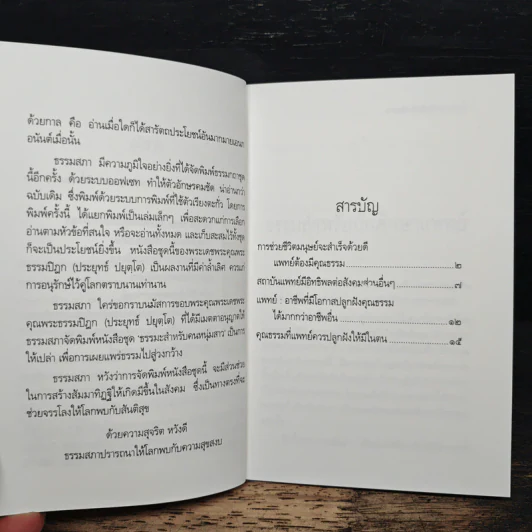 ด้วยกาล คือ อ่านเมื่อใดก็ได้สารัตถประโยชน์อันมากมายเอนก
อนันต์เมื่อนั้น
ธรรมสภา มีความภูมิใจอย่างยิ่งที่ได้จัดพิมพ์ธรรมกถาชุด
นี้อีกครั้ง ด้วยระบบออฟเซท ทำให้ตัวอักษรคมชัด น่าอ่านกว่า
ฉบับเดิม ซึ่งพิมพ์ด้วยระบบการพิมพ์ที่ใช้ตัวเรียงตะกั่ว โดยการ
พิมพ์ครั้งนี้ ได้แยกพิมพ์เป็นเล่มเล็กๆ เพื่อสะดวกแก่การเลือก
อ่านตามหัวข้อที่สนใจ หรือจะอ่านทั้งหมด และเก็บสะสมไว้ทั้งชุด
ก็จะเป็นประโยชน์ยิ่งขึ้น หนังสือชุดนี้ของพระเดชพระคุณพระ
ธรรมปิฎก (ประยุทธ์ ปยุตฺโต) เป็นผลงานที่มีค่าล้ำเลิศ ควรแก่
การอนุรักษ์ไว้คู่โลกตราบนานเท่านาน
ธรรมสภา ใคร่ขอกราบนมัสการขอบพระคุณพระเดชพระ
คุณพระธรรมปิฎก (ประยุทธ์ ปยุตฺโต) ที่ได้มีเมตตาอนุญาตให้
ธรรมสภาจัดพิมพ์หนังสือชุด 'ธรรมะสำหรับคนหนุ่มสาว' เป็นการ
ให้เปล่า เพื่อการเผยแพร่ธรรมไปสู่วงกว้าง
ธรรมสภา หวังว่าการจัดพิมพ์หนังสือชุดนี้ จะมีส่วนช่วย
ในการสร้างสัมมาทิฏฐิให้เกิดมีขึ้นในสังคม ซึ่งเป็นทางตรงที่จะ
ช่วยจรรโลงให้โลกพบกับสันติสุข
ด้วยความสุจริต หวังดี
ธรรมสภาปรารถนาให้โลกพบกับความสุขสงบ
สารบัญ
การช่วยชีวิตมนุษย์จะสำเร็จด้วยดี
แพทย์ต้องมีคุณธรรม ๒
สถาบันแพทย์มีอิทธิพลต่อสังคมกว่าสถาบันอื่นๆ ๗
แพทย์ : อาชีพที่มีโอกาสปลูกฝังคุณธรรม
ได้มากกว่าอาชีพอื่น ๑๒
คุณธรรมที่แพทย์ควรปลูกฝังให้มีในตน ๑๕